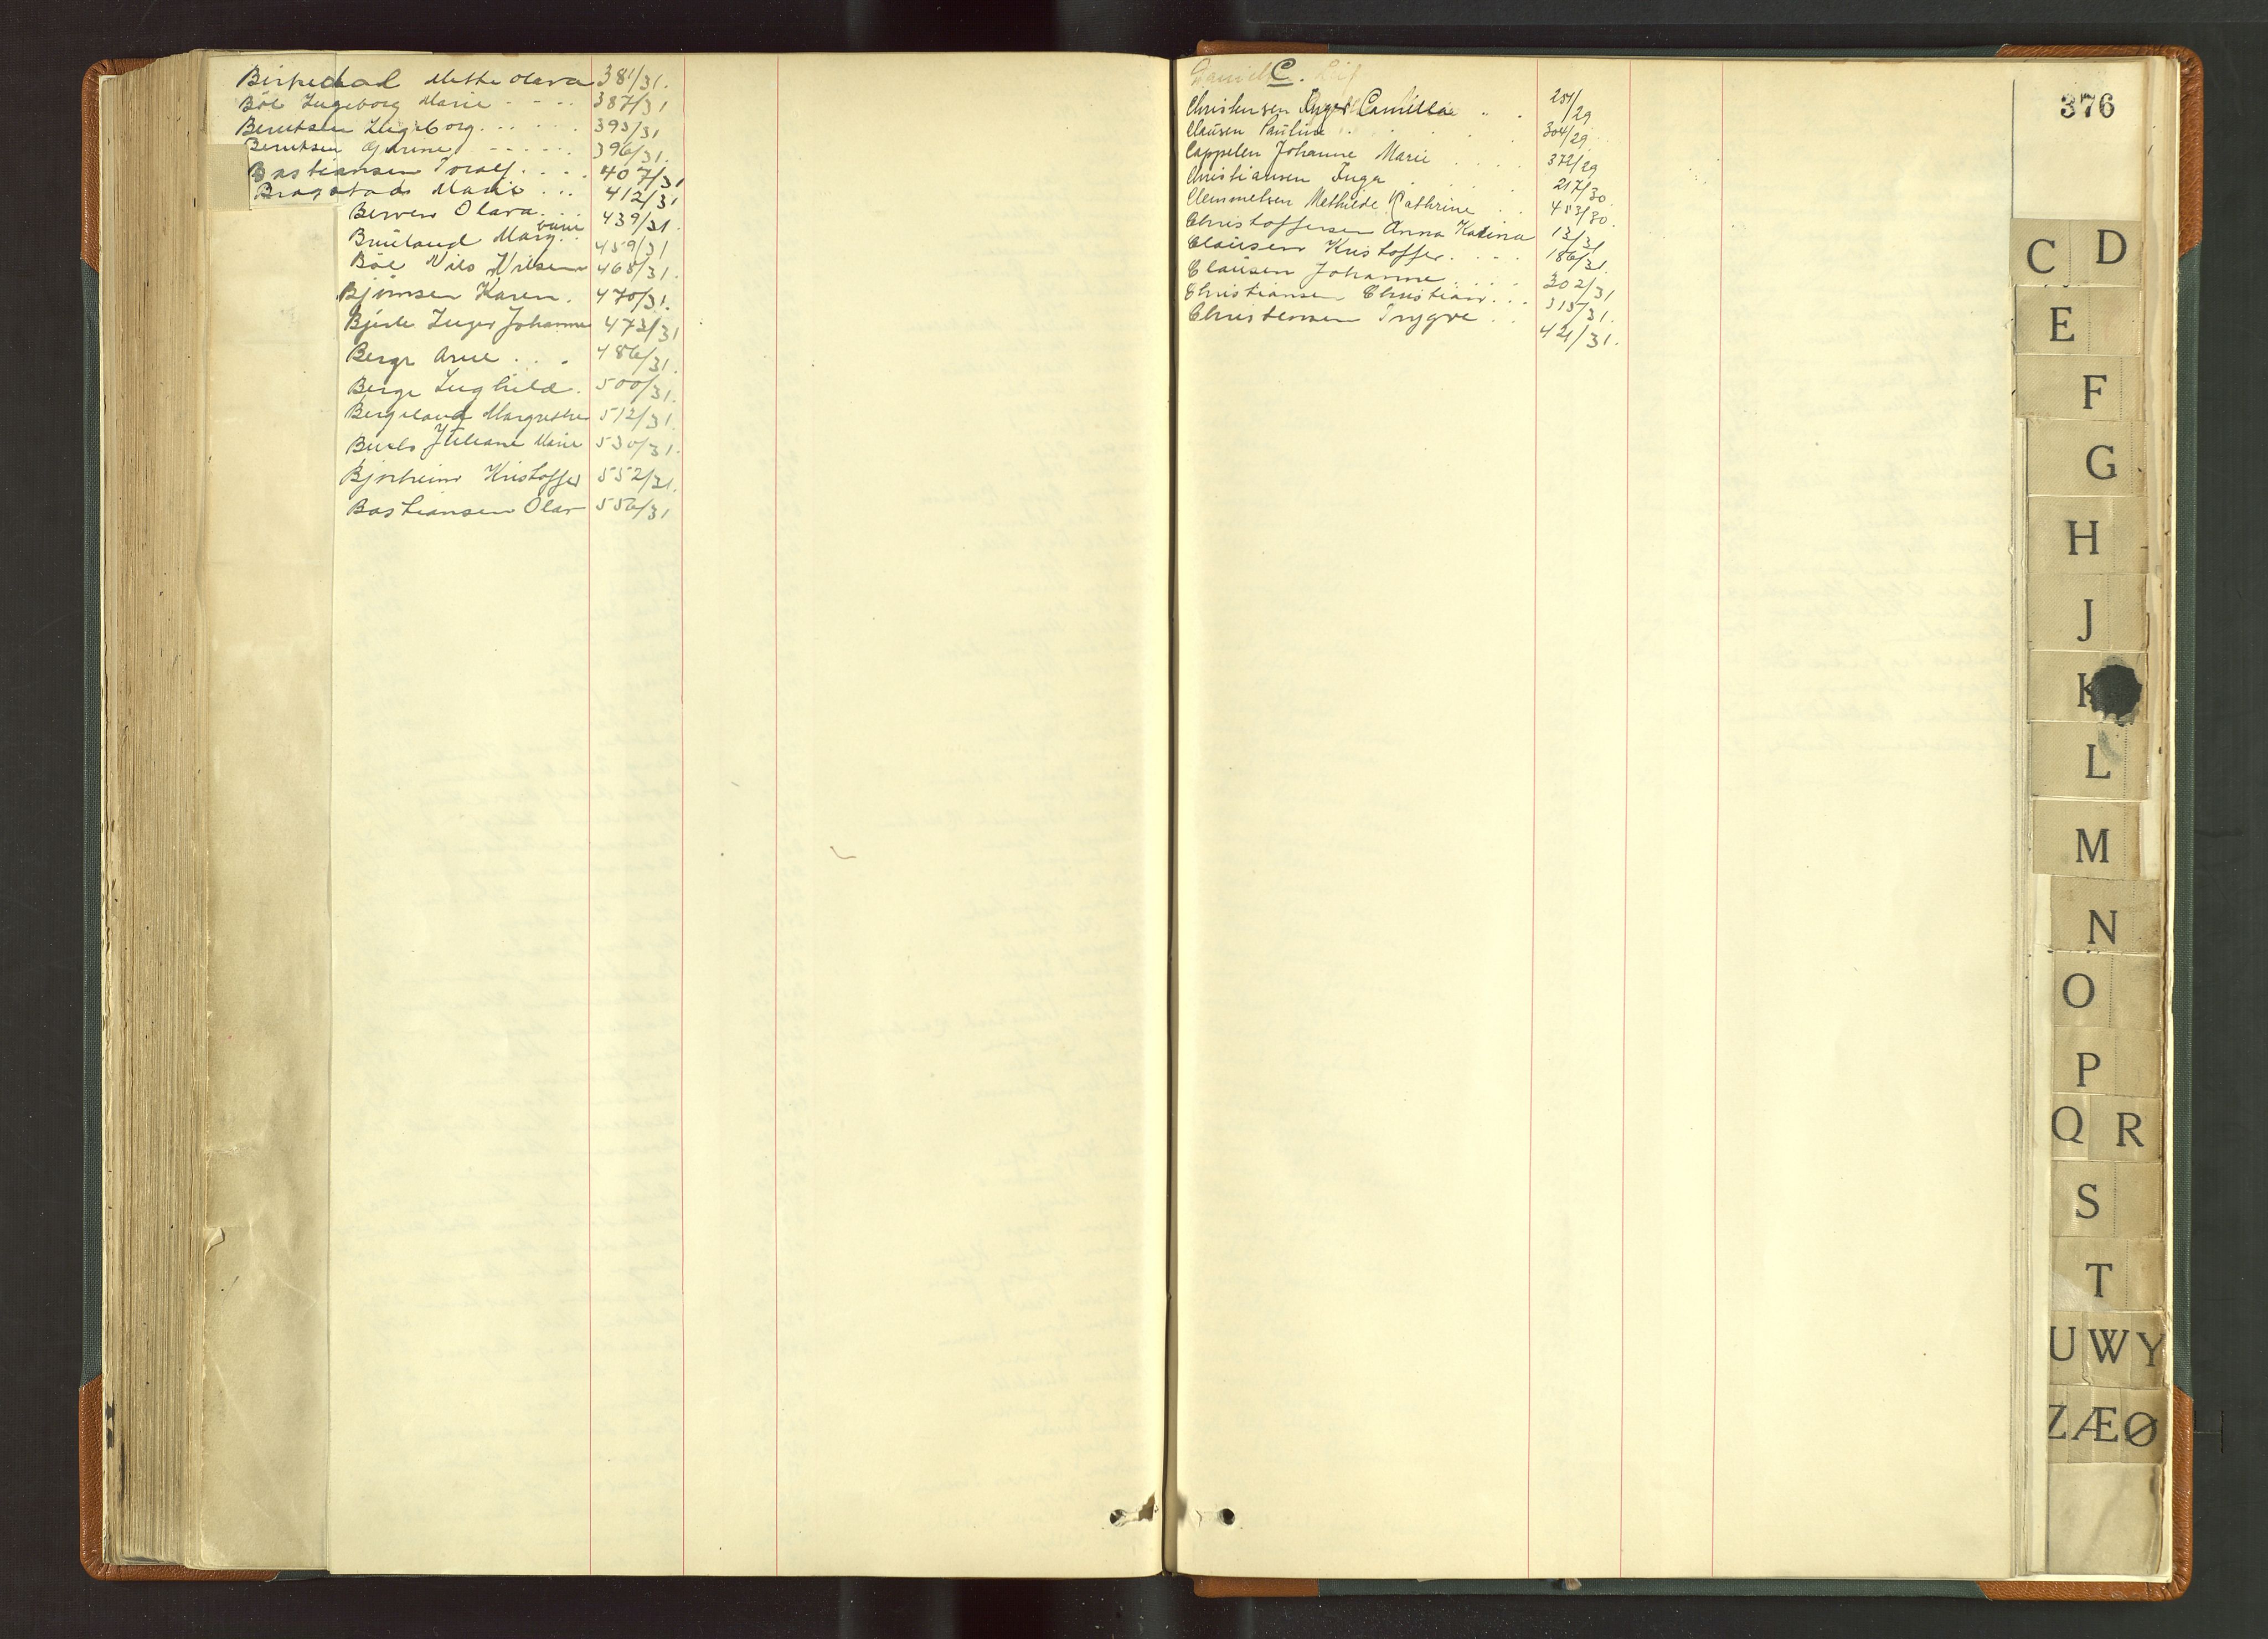 Birkedal Mette Olava 381/31.
Böe Ingeborg Marie - - .. 387/31
Berntsen Ingeborg... ... 393/31
Berntsen Gurine - - - - ... 396/31.
Bastiansen Toralf.... 407/31
Bragstads Marie ... 412/31
Berven Olava.... 439/31.
Brueland Marg. 459/31
Böe Nils Nilsen 468/31.
Bjørnsen Karen. 470/31.
Inger Johanne 473/31
Berge Arne . . . 486/31.
Berge Inghild . 500/31.
Bergeland Margrethe 512/31.
Juliane Marie 530/31.
Bjorheim Kristoffer 552/31.
Bastiansen Olav 556/31
C.
Christensen Inger Camilla .. . 251/29
Clausen Pauline . . . . 304/29
Cappelen Johanne Marie . . . . 372/29
Christiansen Inga . . . . 217/30
Clemmetsen Mathilde Kathrine . . 453/30.
Christoffersen Anna Katina 13/31
Clausen Kristoffer. . . . 186/31.
Clausen Johanne . . . . 302/31
Christiansen Christian. . . 315/31.
Christensen Trygve . . 421/31.
376
C D
E
F
G
H
J
K
L
M
N
O
P
Q R
S
T
U W Y
Z Æ Ø